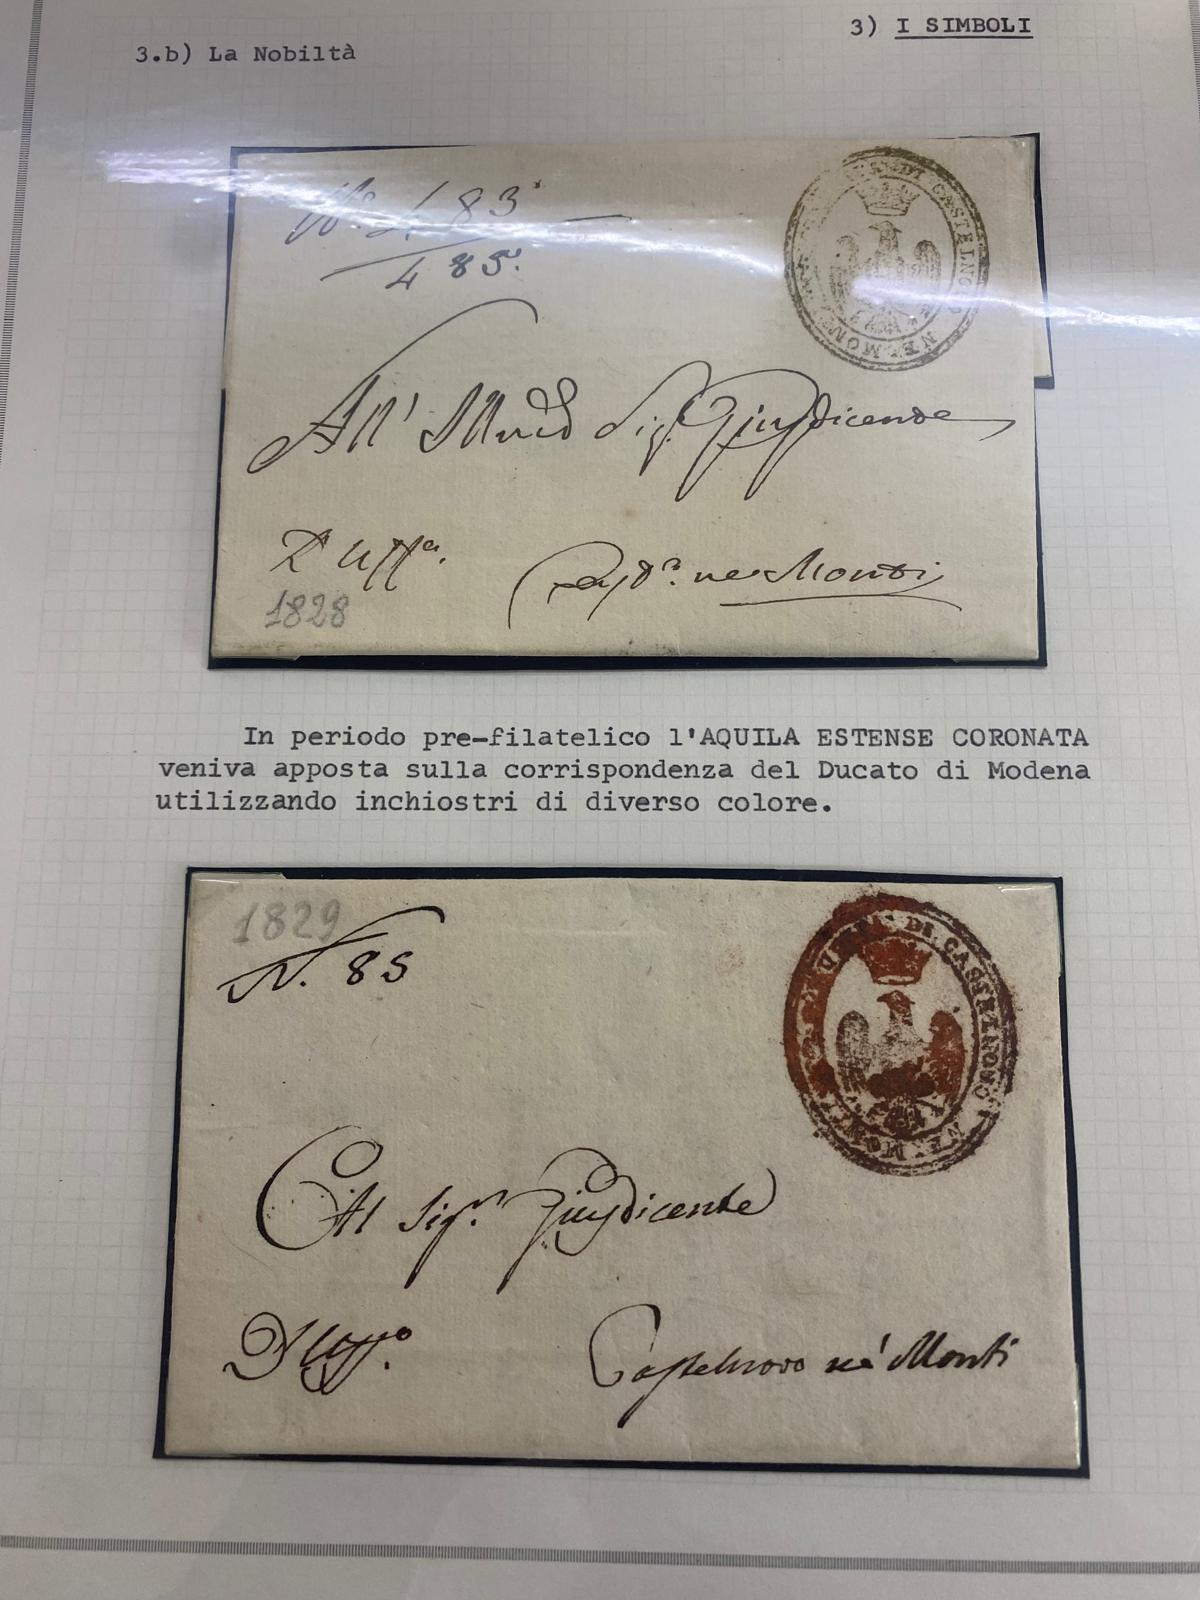 3) I SIMBOLI
3.b) La Nobiltà
DI CASTELNOVO NE MON
N.° 483
485.
All' Sig.r Giusdicente
D' Uff.o
ne Monti
1828
In periodo pre-filatelico l'AQUILA ESTENSE CORONATA
veniva apposta sulla corrispondenza del Ducato di Modena
utilizzando inchiostri di diverso colore.
1829
N. 85
DI CASTELNOVO NE MON
Al Sig.r Giusdicente
D'Uff.o
Castelnovo né Monti